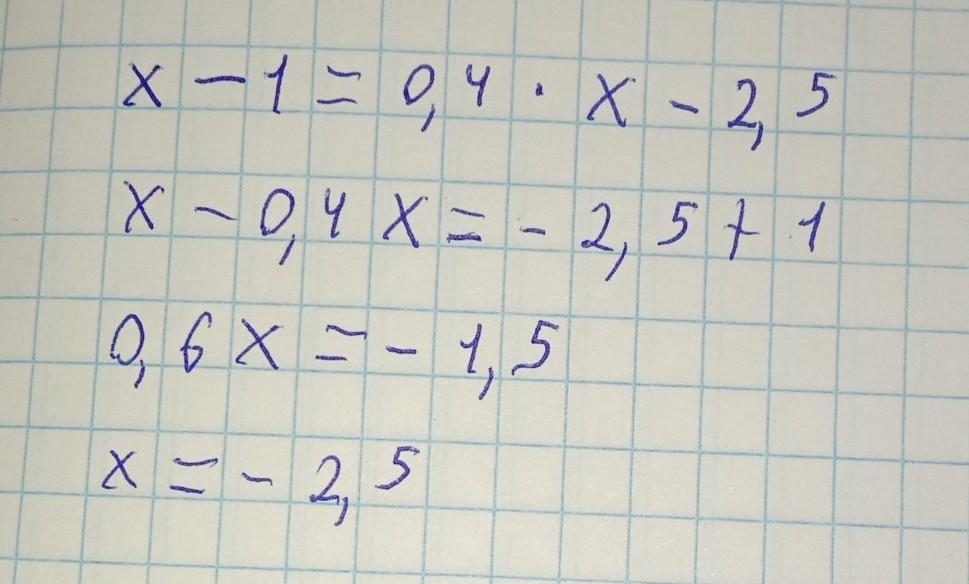 x - 1 = 0,4 · x - 2,5
x - 0,4 x = - 2,5 + 1
0,6 x = - 1,5
x = - 2,5